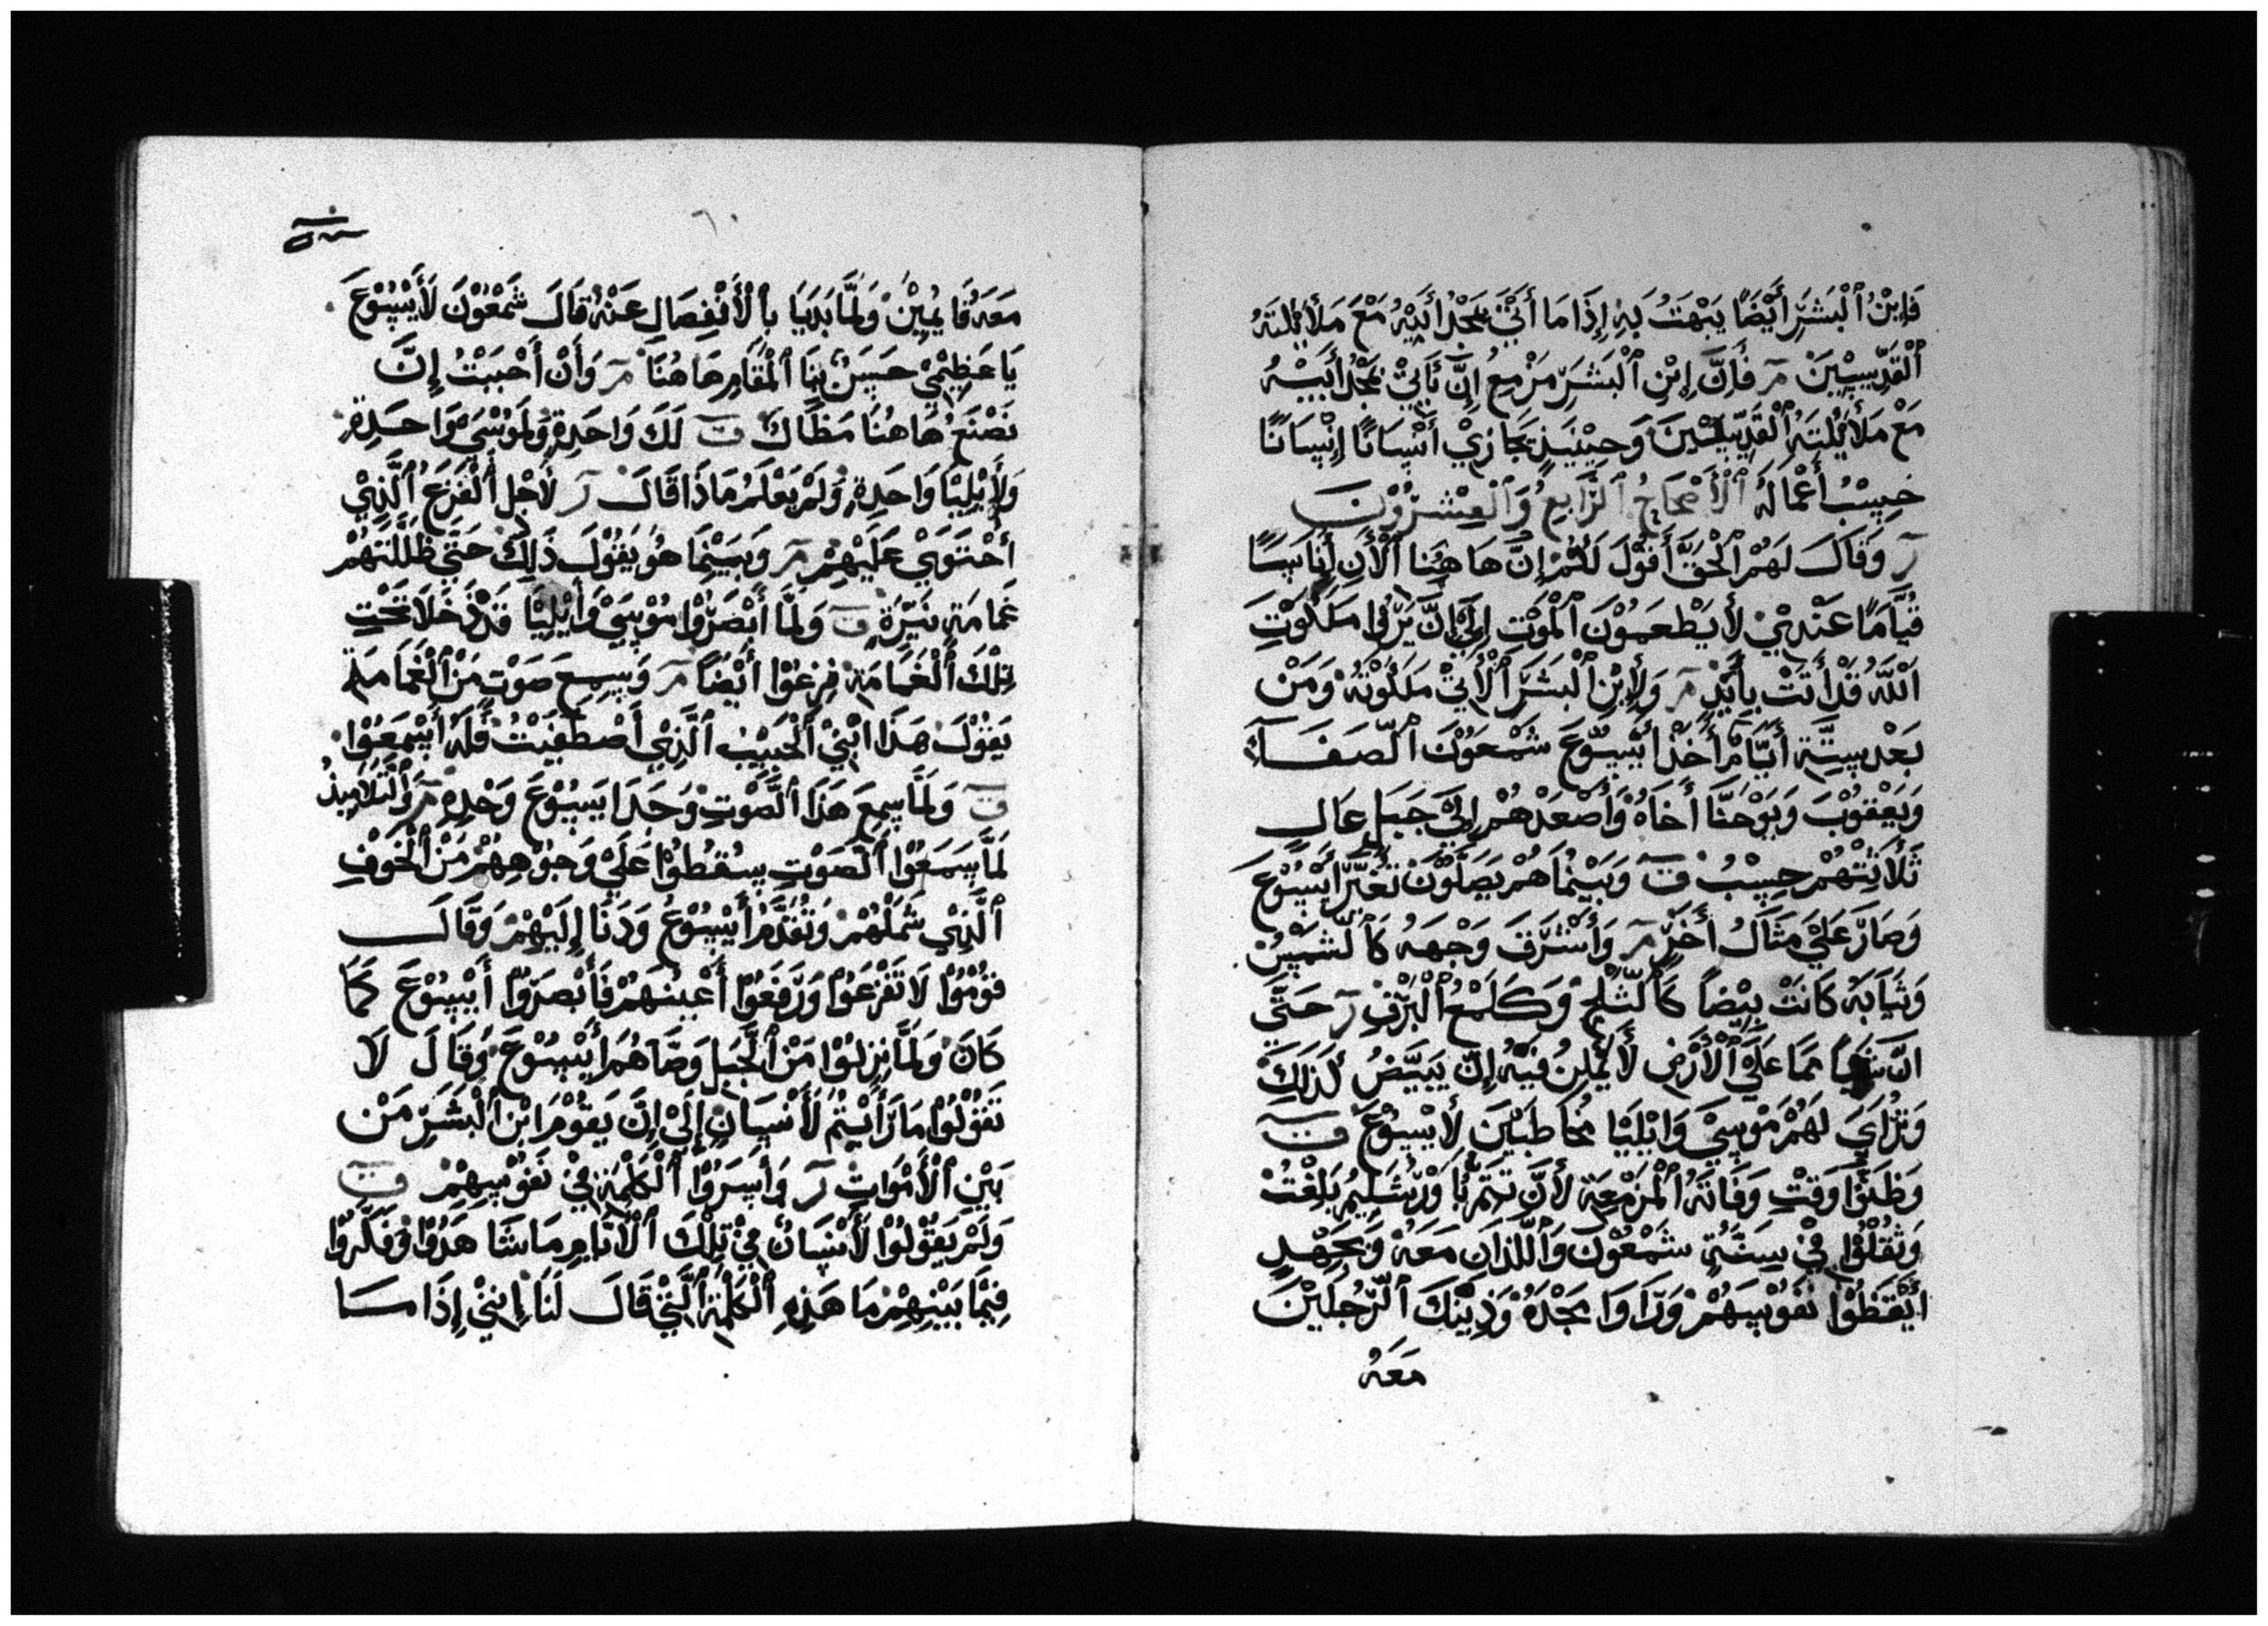 فَإِبْنُ ٱلْبَشَرِ أَيْضًا يَبْهَتُ بَهِ إِذَا مَا أَتَيَ بَجْدِ أَبَيْهُ مَعَ مَلَائِكَتَهُ
ٱلْقَدِّيسِيْنَ مر فَأِنَّ إِبْنِ ٱلْبَشَرِ مَزْمِعُ إِنَّ يَأَتِيْ بَجْدِ أَبَيْهُ
مَعْ مَلَائِكَتِهُ ٱلْقَدِّيسْيْنَ وَحِيْنَيِذٍ يَجَازِيْ أَنْسِانًا إِنْسِانًا
حَسِبْ أَعْمَالَهُ ٱلْأَصْحَاحُ ٱلرَّابِعُ وَٱلْعِشْرُوْنَ
ر وَقَالَ لَهُمْ ٱلْحَقَّ أَقُوْلَ لَكُمْ إِنَّ هَاهُنَا ٱلْأَنِ أَنَاسًا
قُيَّامًا عَنْدِيْ لَأيَطْعَمُوْنَ ٱلْمَوْتِ إِلَيَ إِنَّ يَرَوا مَلَكُوْتِ
ٱللَّهُ قَدْ أَتَتْ بِأَيْدٍ مر وَلِأِبْنِ ٱلْبَشَرَ ٱلْأَتِيْ مَلَكُوْتَهُ وَمَنْ
بَعْدِ سِتَّةِ أَيَّامْ أَخَذَ أَيْسُوْعَ شَمْعَوْنَ ٱلصَّفَاءَ
وَيَعْقُوْبَ وَيَوْحَنَّا أَخَاهُ وَأَصْعَدْهُمْ إِلَيَ جَبَلٍ عَالٍ
ثَلَاثَتْهُمْ حِسْبُ ق وَبَيْنُمَا هُمْ يَصَلُّوْنَ تَغَيَّرَ أَيْسُوْعَ
وَصَارَ عَلَيْ مَثَالُ أَخَرٍ مر وَأَشْرَقَ وَجْهَهُ كَٱلشَمْسُ
وَثَيَابَهُ كَانَتْ بِيْضَاً كَٱلثَّلْجِ وَكَلَمْعُ ٱلْبَرْقِ ر حَتَّي
انَّ شَيَاً مَمَا عَلَيَ ٱلْأَرْضِ لَأيُمْكِنُ فَيْهُ إِنَّ يَبَيَّضُ كَذَلِكَ
وَتَرُاَيَ لَهُمْ مَوْسِيْ وَايْلِيَا مُخَاطَبَيْنَ لَأيْسُوْعَ ق
وَظَنُّوْا وَقَتْ وَفَاتَهُ ٱلْمَزْمِعَةَ لَأَنَّ تَتَمَ بَأَوْرُشَلِيْمُ بَلِغْتْ
وَثَقُلُوْا فِيْ سِنَةٍ شَمْعُوْنَ وَٱللَّذَانَ مَعَهُ وَبَجِهْدٍ
ايْقَظُوْا نَفُوْسِهُمْ وَرَاَوَا بَجْدَهُ وَذِيْنَكَ ٱلرَّجُلَيْنَ
مَعَهُ
٦٠
مَعَهُ قَايِمْيِنْ وَلَمَّا بَدَيَا بِٱلْأَنْفِصَالِ عَنْهُ قَالَ شَمْعُوْنَ لَأَيْسُوْعَ
يَا عَظِيْمْيْ حَسَنٌ بِنَا ٱلْمَقَامِ هَاهُنَا مر وَأَنْ أَحْبَبْتُ إِنَّ
نَصْنَعُ هَاهُنَا مَظَاَلَ ق لَكَ وَاحَدِةٍ وَلَمَوْسَيْ وَاحَدِةٍ
وَلَأِيْلِيْيَا وَاحَدِةٍ وَلَمْ يَعْلَمُ مَاذَا قَالَ ر لَأَجْلِ ٱلْفَزَعَ ٱلَّذِيْ
أحْتَوَيْ عَلَيْهِمْ مر وَبَيَنْمَا هُوَ يَقُوْلَ ذَلِكَ حَتَّيَ ظَلَّلَتْهُمْ
غَمَامَةٍ نَيِّرَةٍ ق وَلَمَّا أَبْصَرُوْا مُوْسَيْ وَأَيْلِيْا قَدْ دَخَلَا تَحْتِ
تِلْكَ ٱلْغَمَامَةِ فِزِعُوْا أَيْضًا مر وَسِمِعَ صَوْتٍ مَنْ ٱلْغَمَامَةِ
يَقُوْلَ هَذَا ابْنِيْ ٱلْحَبِيْبْ ٱلَّذِيْ أَصْطَفَيْتُ فَلَهُ أَسْمَعُوْا
ق وَلَمَّا سِمِعَ هَذَا ٱلصَّوْتِ وَجَدَا يَسُوْعَ وَحْدِهِ مر وَٱلتَّلَامِيْذُ
لَمَّا سَمَعُوْا ٱلصَوْتِ سِقُطُوْا عَلَيْ وَجُوْهِهُمْ مَنْ ٱلْخَوْفِ
ٱلَّذِيْ شَمَلْهُمْ وَتُقُدَّمَ أَيْسُوْعُ وَدَنَا إِلَيْهِمْ وَقَالَ
قُوْمُوْا لَا تَفْزَعَوْا وَرَفَعَوْا أَعْيُنَهَمْ فَأَبْصَرُوْا أَيْسِوْعَ كَمَا
كَانَ وَلَمَّا نِزِلُوْا مَنْ ٱلْجَبَلِ وَصَّاهُمَ أَيْسُوْعَ وَقَالَ لَا
تَقُوْلُوْا مَا رَأَيْتُمْ لَأَنْسِانٍ إِلَيْ إِنَّ يَقُوْمَ ابْنِ ٱلْبَشَرِ مَنْ
بَيْنِ ٱلْأَمْوَاتِ ر وَأَسِرُوْا ٱلْكَلْمِةَ فِيْ نَفُوْسِهْمْ ق
وَلَمْ يَقُوْلُوْا لَأَنْسَانٌ فِيْ تِلْكَ ٱلْأَيَامِ مَا شَاهَدُوْا وَفَكَّرُوْا
فِيْمَا بَيْنِهِمْ مَا هَذِهِ ٱلْكَلْمِةَ ٱلَّتِيْ قَالَ لَنَا إِنَنِيْ إِذَا مَا